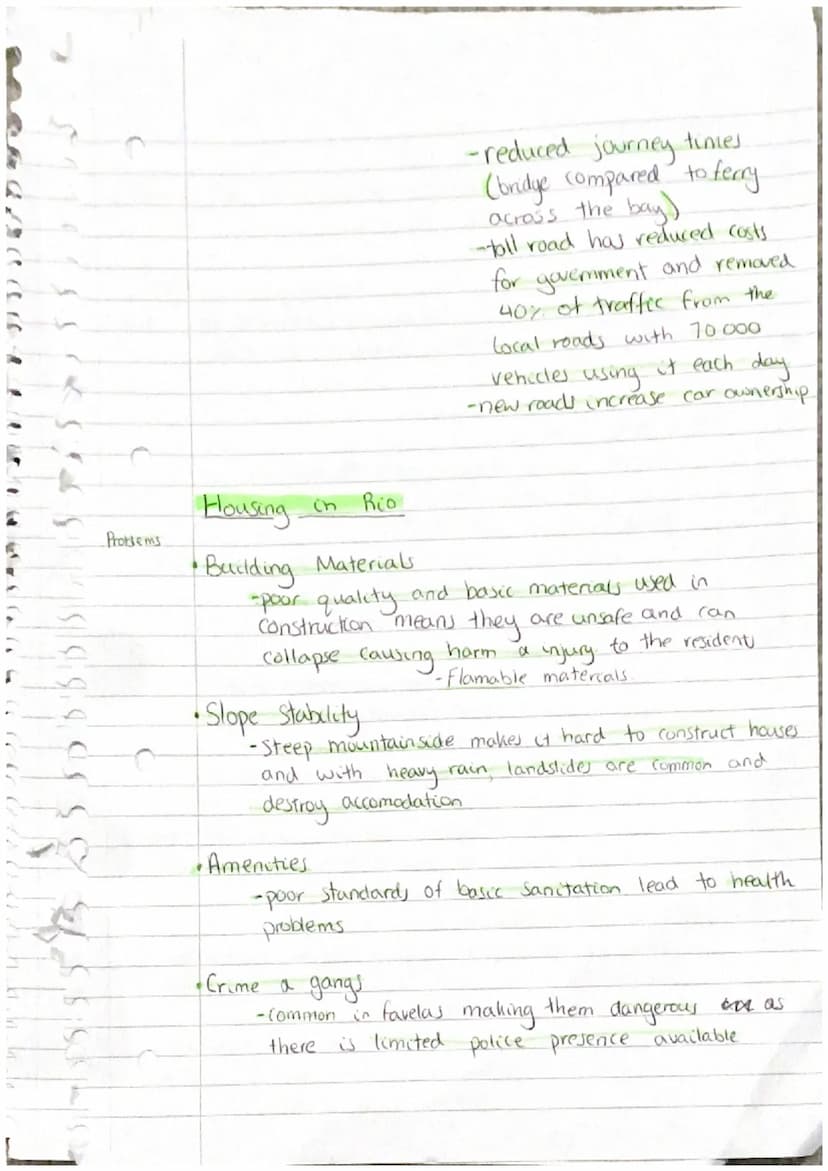 -reduced journey times
(bridge compared to ferry
across the bay)
-toll road has reduced costs
for government and removed
40% of traffic from the
local roads with 70 000
vehicles using it each day
-new roads increase car ownership
Housing in Rio
Problems
• Building Materials
-poor quality and basic materials used in
construction means they are unsafe and can
collapse causing harm & injury to the resident
-Flamable materials
• Slope Stability
- Steep mountainside makes it hard to construct houses
and with heavy rain, landslides are common and
destroy accomodation
• Amenities
-poor standards of basic sanitation lead to health
problems
• Crime & gangs
-common in favelas making them dangerous as
there is limited police presence available